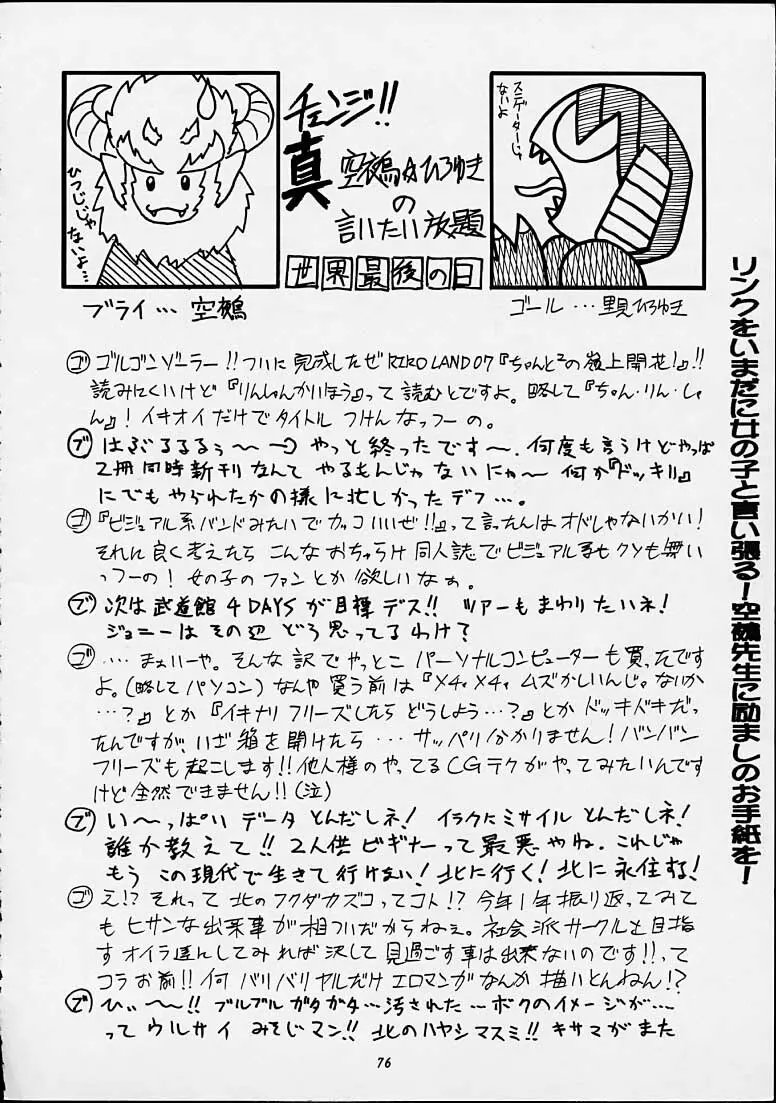 チェンジ!!
真 空鵺☆ひろゆき
の
言いたい放題
世界最後の日
ひつじじゃ
ないよ…
ステゴーターじゃ
ないよ
ブライ… 空鵺
ゴール …里見ひろゆき
ゴ ゴルゴンゾーラー!!ついに完成したぜRIRO LAND 07『ちゃんと²の嶺上開花!』!!
読みにくいけど『りんしゃんかいほう』って読むとですよ。略して『ちゃん・りん・しゃ
ん』! イキオイだけでタイトルつけんなっつーの。
ブ はぶるるるぅ〜〜 やっと終ったです〜。何度も言うけどやっぱ
2冊同時新刊なんて やるもんじゃないにゃ〜 何か『ドッキリ』
にでもやられたかの様に忙しかったデフ…。
ゴ 『ビジュアル系バンドみたいでカッコいいぜ!!』って言ったんはオドしゃないかい!
それに良く考えたら こんなおちゃらけ同人誌でビジュアル系もクソも無い
っつーの! 女の子のファンとか欲しいなぁ。
ブ 次は武道館4DAYSが目標デス!! ツアーもまわりたいネ!
ジョニーは その辺 どう思ってるわけ?
ゴ … まぁいーや。そんな訳でやっとこ パーソナルコンピューターも買ったです
よ。(略してパソコン)なんや買う前は『メチャメチャ ムズかしいんじゃないか
…?』とか『イキナリ フリーズしたら どうしよう…?』とか ドッキドキだっ
たんですが、いざ箱を開けたら … サッパリ分かりません! バンバン
フリーズも起こします!! 他人様のやってるCGテクがやってみたいんです
けど全然できません!!(泣)
ブ い〜っぱい データ とんだしネ! イラクにミサイル とんだしネ!
誰か教えて!! 2人供 ビギナーって最悪やね。これじゃ
もう この現代で生きて行けない! 北に行く! 北に永住する!
ゴ え!? それって 北のフクダカズコってコト!? 今年1年振り返ってみて
も ヒサンな出来事が相ついだからねぇ。社会派サークルを目指
すオイラ達んしてみれば決して見過ごす事は出来ないのです!!って
コラお前!! 何 バリバリヤルだけエロマンガなんか 描いとんねん!?
ブ ひぃ〜〜!! ブルブルガタガタ…汚された…ボクのイメージが…
って ウルサイ みそじマン!! 北のハヤシマスミ!! キサマがまた
リンクをいまだに女の子と言い張る!空鵺先生に励ましのお手紙を!
76